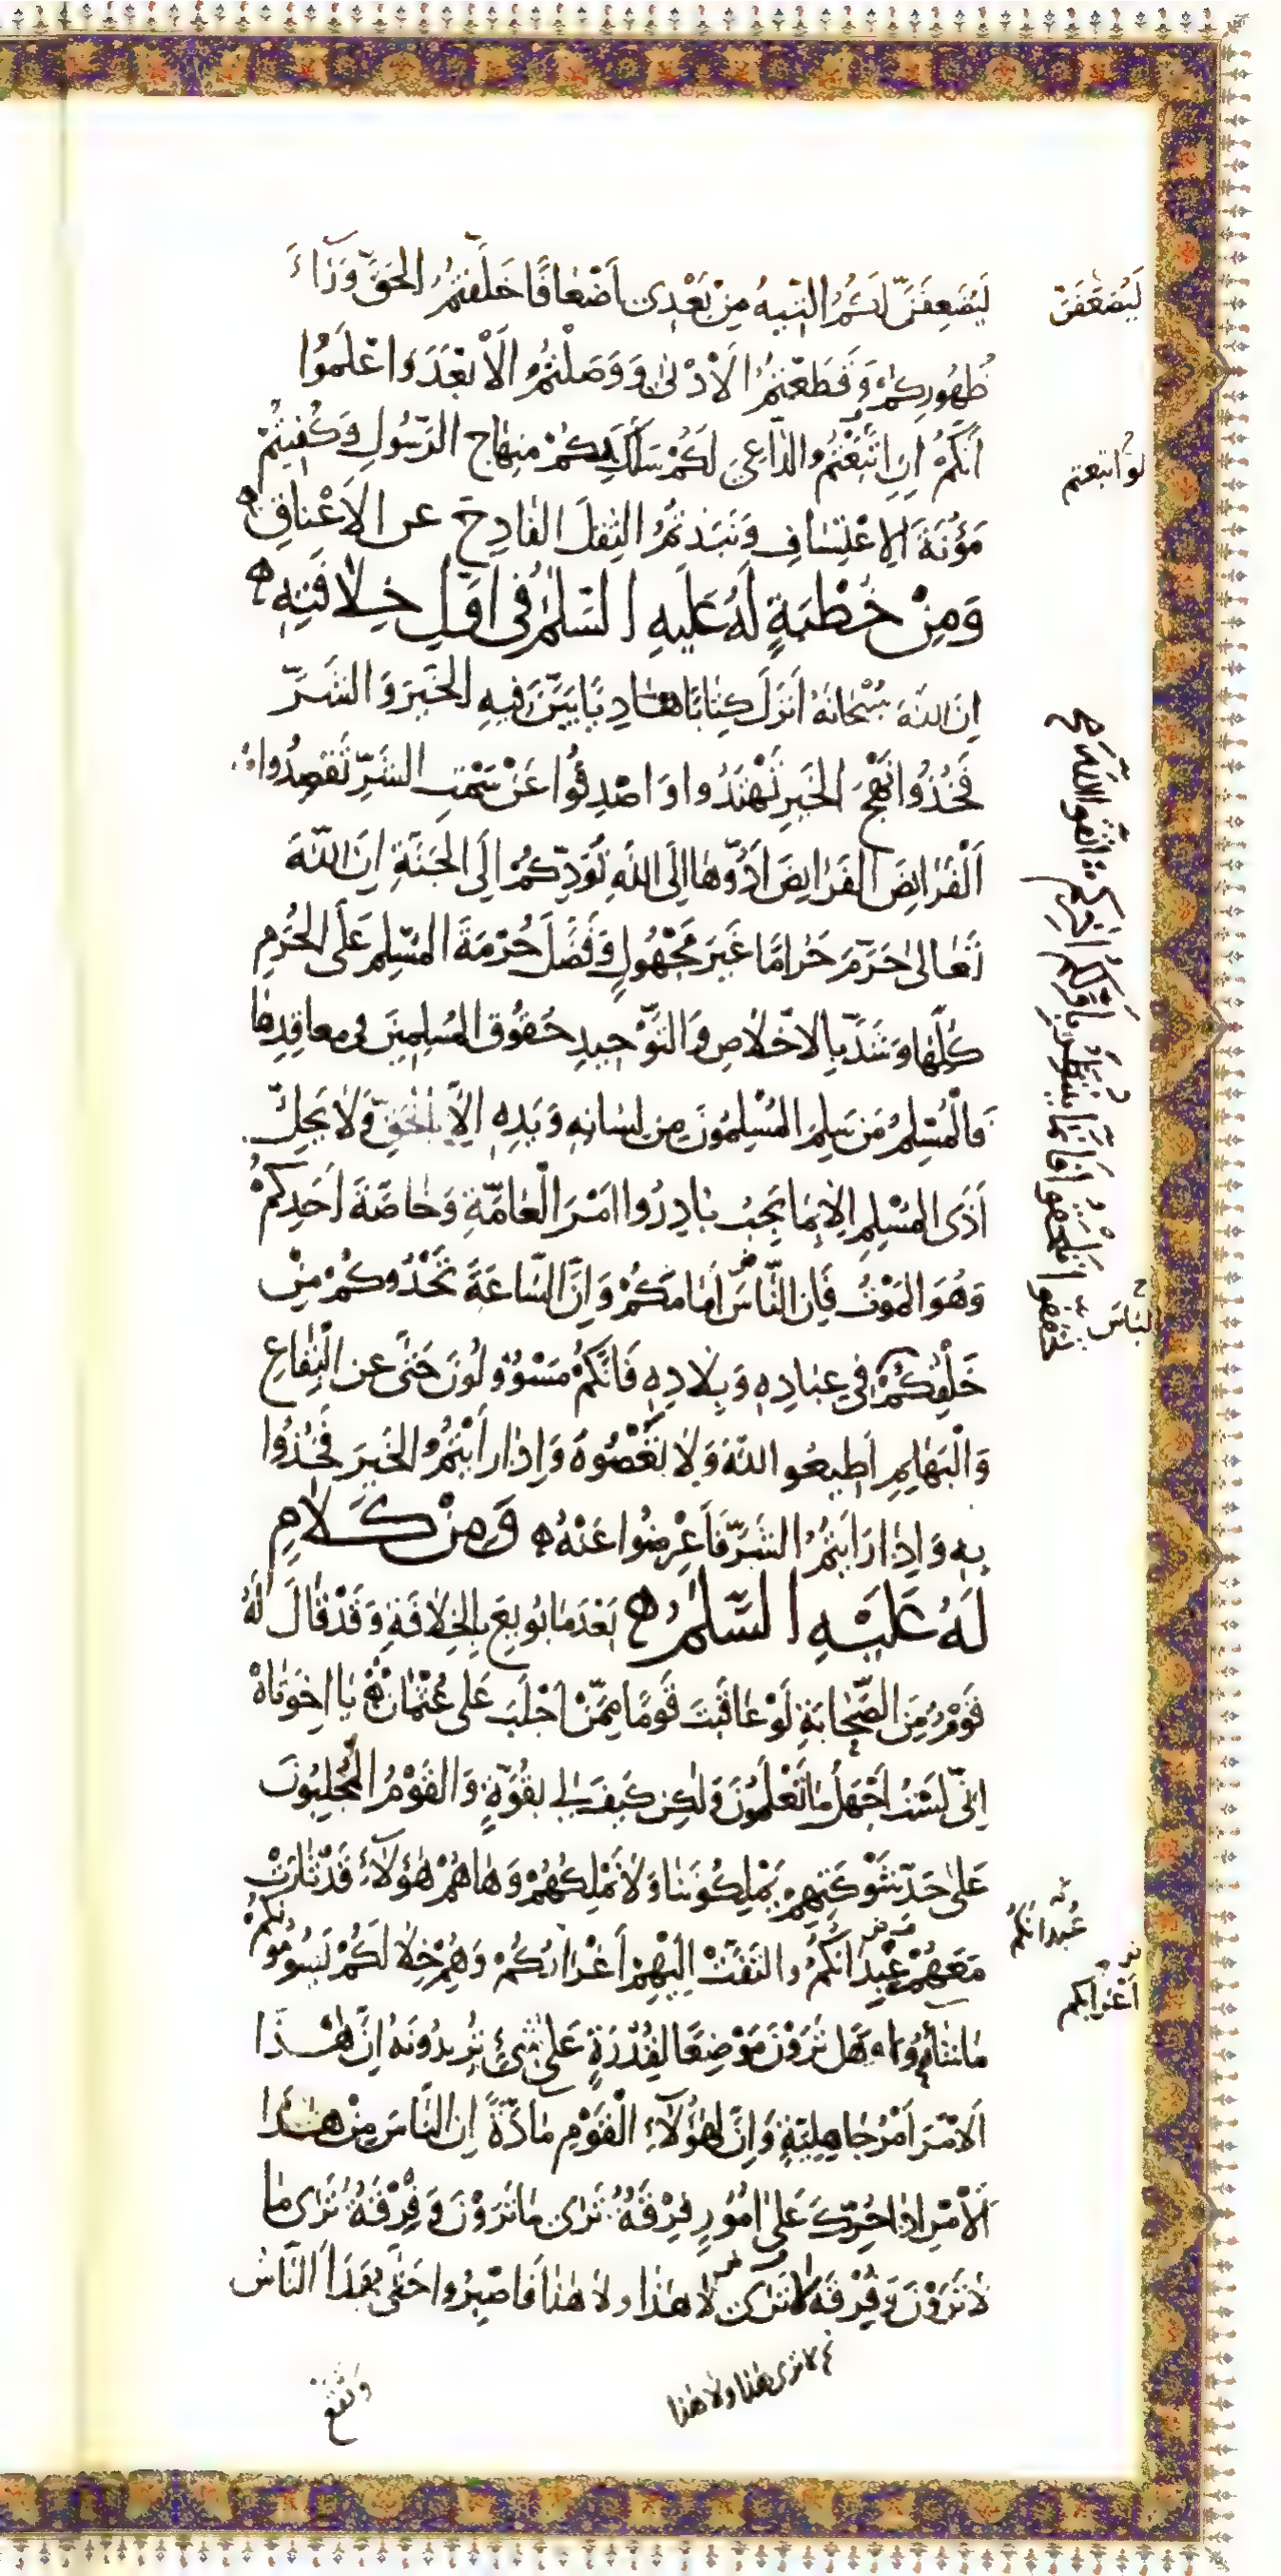 لَيُضَعِّفَنَّ لَكُمُ التِّيهُ مِنْ بَعْدِي أَضْعَافًا خَلَّفْتُمُ الْحَقَّ وَرَاءَ
ظُهُورِكُمْ وَقَطَعْتُمُ الْأَدْنَى وَوَصَلْتُمُ الْأَبْعَدَ وَاعْلَمُوا
أَنَّكُمْ إِنِ اتَّبَعْتُمُ الدَّاعِيَ لَكُمْ سَلَكَ بِكُمْ مِنْهَاجَ الرَّسُولِ وَكُفِيتُمْ
مَؤُنَةَ الِاعْتِسَافِ وَنَبَذْتُمُ الثِّقْلَ الْفَادِحَ عَنِ الْأَعْنَاقِ
وَمِنْ خُطْبَةٍ لَهُ عَلَيْهِ السَّلٰمُ فِي أَوَّلِ خِلَافَتِهِ
إِنَّ اللهَ سُبْحَانَهُ أَنْزَلَ كِتَابًا هَادِيًا بَيَّنَ فِيهِ الْخَيْرَ وَالشَّرَّ
فَخُذُوا نَهْجَ الْخَيْرِ تَهْتَدُوا وَاصْدِفُوا عَنْ سَمْتِ الشَّرِّ تَقْصِدُوا
الْفَرَائِضَ الْفَرَائِضَ أَدُّوهَا إِلَى اللهِ تُؤَدِّكُمْ إِلَى الْجَنَّةِ إِنَّ اللهَ
تَعَالَى حَرَّمَ حَرَامًا غَيْرَ مَجْهُولٍ وَفَضَّلَ حُرْمَةَ الْمُسْلِمِ عَلَى الْحُرَمِ
كُلِّهَا وَشَدَّ بِالْإِخْلَاصِ وَالتَّوْحِيدِ حُقُوقَ الْمُسْلِمِينَ فِي مَعَاقِدِهَا
فَالْمُسْلِمُ مَنْ سَلِمَ الْمُسْلِمُونَ مِنْ لِسَانِهِ وَيَدِهِ إِلَّا بِالْحَقِّ وَلَا يَحِلُّ
أَذَى الْمُسْلِمِ إِلَّا بِمَا يَجِبُ بَادِرُوا أَمْرَ الْعَامَّةِ وَخَاصَّةَ أَحَدِكُمْ
وَهُوَ الْمَوْتُ فَإِنَّ النَّاسَ أَمَامَكُمْ وَإِنَّ السَّاعَةَ تَحْدُوكُمْ مِنْ
خَلْفِكُمْ فِي عِبَادِهِ وَبِلَادِهِ فَإِنَّكُمْ مَسْؤُولُونَ حَتَّى عَنِ الْبِقَاعِ
وَالْبَهَائِمِ أَطِيعُوا اللهَ وَلَا تَعْصُوهُ وَإِذَا رَأَيْتُمُ الْخَيْرَ فَخُذُوا
بِهِ وَإِذَا رَأَيْتُمُ الشَّرَّ فَأَعْرِضُوا عَنْهُ وَمِنْ كَلَامٍ
لَهُ عَلَيْهِ السَّلٰمُ بَعْدَ مَا بُويِعَ بِالْخِلَافَةِ وَقَدْ قَالَ لَهُ
قَوْمٌ مِنَ الصَّحَابَةِ لَوْ عَاقَبْتَ قَوْمًا مِمَّنْ أَجْلَبَ عَلَى عُثْمَانَ يَا إِخْوَتَاهْ
إِنِّي لَسْتُ أَجْهَلُ مَا تَعْلَمُونَ وَلٰكِنْ كَيْفَ لِي بِقُوَّةٍ وَالْقَوْمُ الْمُجْلِبُونَ
عَلَى حَدِّ شَوْكَتِهِمْ يَمْلِكُونَنَا وَلَا نَمْلِكُهُمْ وَهَا هُمْ هٰؤُلَاءِ قَدْ ثَارَتْ
مَعَهُمْ عِبْدَانُكُمْ وَالْتَفَّتْ إِلَيْهِمْ أَعْرَابُكُمْ وَهُمْ خِلَالَكُمْ يَسُومُونَكُمْ
مَا شَاءُوا هَلْ تَرَوْنَ مَوْضِعًا لِقُدْرَةٍ عَلَى شَيْءٍ تُرِيدُونَهُ إِنَّ هٰذَا
الْأَمْرَ أَمْرُ جَاهِلِيَّةٍ وَإِنَّ لِهٰؤُلَاءِ الْقَوْمِ مَادَّةً إِنَّ النَّاسَ مِنْ هٰذَا
الْأَمْرِ إِذَا حُرِّكَ عَلَى أُمُورٍ فِرْقَةٌ تَرَى مَا تَرَوْنَ وَفِرْقَةٌ تَرَى مَا
لَا تَرَوْنَ وَفِرْقَةٌ لَا تَرَى لَا هٰذَا وَلَا هٰذَا فَاصْبِرُوا حَتَّى يَهْدَأَ النَّاسُ
لَيُضَعَّفَنَّ
لو اتبعتم
تخففوا تلحقوا فإنما ينتظر بأولكم آخركم اتقوا الله
النَّاسَ
عُبْدَانُكُمْ
أَعْرَابُكُمْ
لا ترى هذا ولا هذا
وَتَقَعَ